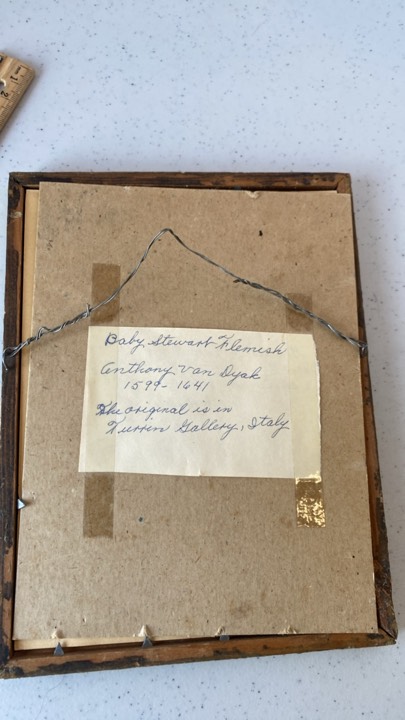 Baby Stewart Flemish
Anthony Van Dyak
1599-1641
The original is in
Turrin Gallery, Italy